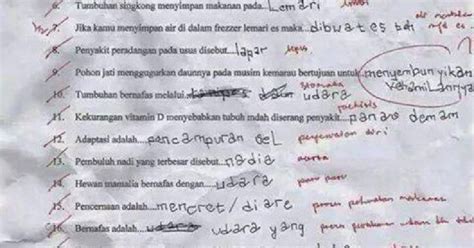 6. Tumbuhan singkong menyimpan makanan pada....Lemari
7. Jika kamu menyimpan air di dalam frezzer lemari es maka...dibuat es
8. Penyakit peradangan pada usus disebut....lapar
9. Pohon jati menggugurkan daunnya pada musim kemarau bertujuan untuk.menyembunyikan
kehamilannya
10. Tumbuhan bernafas melalui....udara
stomata
11. Kekurangan vitamin D menyebabkan tubuh mdah diserang penyakit....panas demam
12. Adaptasi adalah....pencampuran gel penyesuaian diri
13. Pembuluh nadi yang terbesar disebut....nadia aorta
14. Hewan mamalia bernafas dengan....udara paru paru
15. Pencernaan adalah....mencret/diare proses makanan
16. Bernafas adalah....udara yang